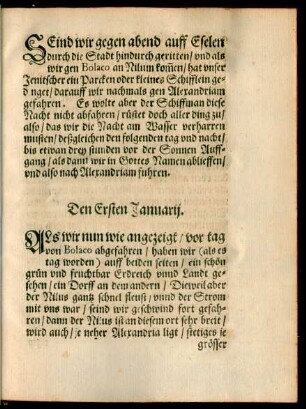 SEind wir gegen abend auff Eselen
durch die Stadt hindurch geritten/ vnd als
wir gen Bolaco an Nilum kom̃en/ hat vnser
Jenitscher ein Parcken oder kleines Schifflein ged
nget/ darauff wir nachmals gen Alexandriam
gefahren. Es wolte aber der Schiffman diese
Nacht nicht abfahren/ rüstet doch aller ding zu/
also/ das wir die Nacht am Wasser verharren
musten/ deßgleichen den folgenden tag vnd nacht/
bis etwan drey stunden vor der Sonnen Auff-
gang/ als dann wir in Gottes Namen ablieffen/
vnd also nach Alexandriam fuhren.
Den Ersten Januarij.
ALs wir nun wie angezeigt/ vor tag
von Bolaco abgefahren/ haben wir (als es
tag worden) auff beiden seiten/ ein schön
grün vnd fruchtbar Erdreich vnnd Landt ge-
sehen/ ein Dorff an dem andern/ Dieweil aber
der Nilus gantz schnel fleust/ vnnd der Strom
mit vns war/ seind wir geschwind fort gefah-
ren/ dann der Nilus ist an diesem ort sehr breit/
wird auch/ je neher Alexandria ligt/ stetiges je
grösser